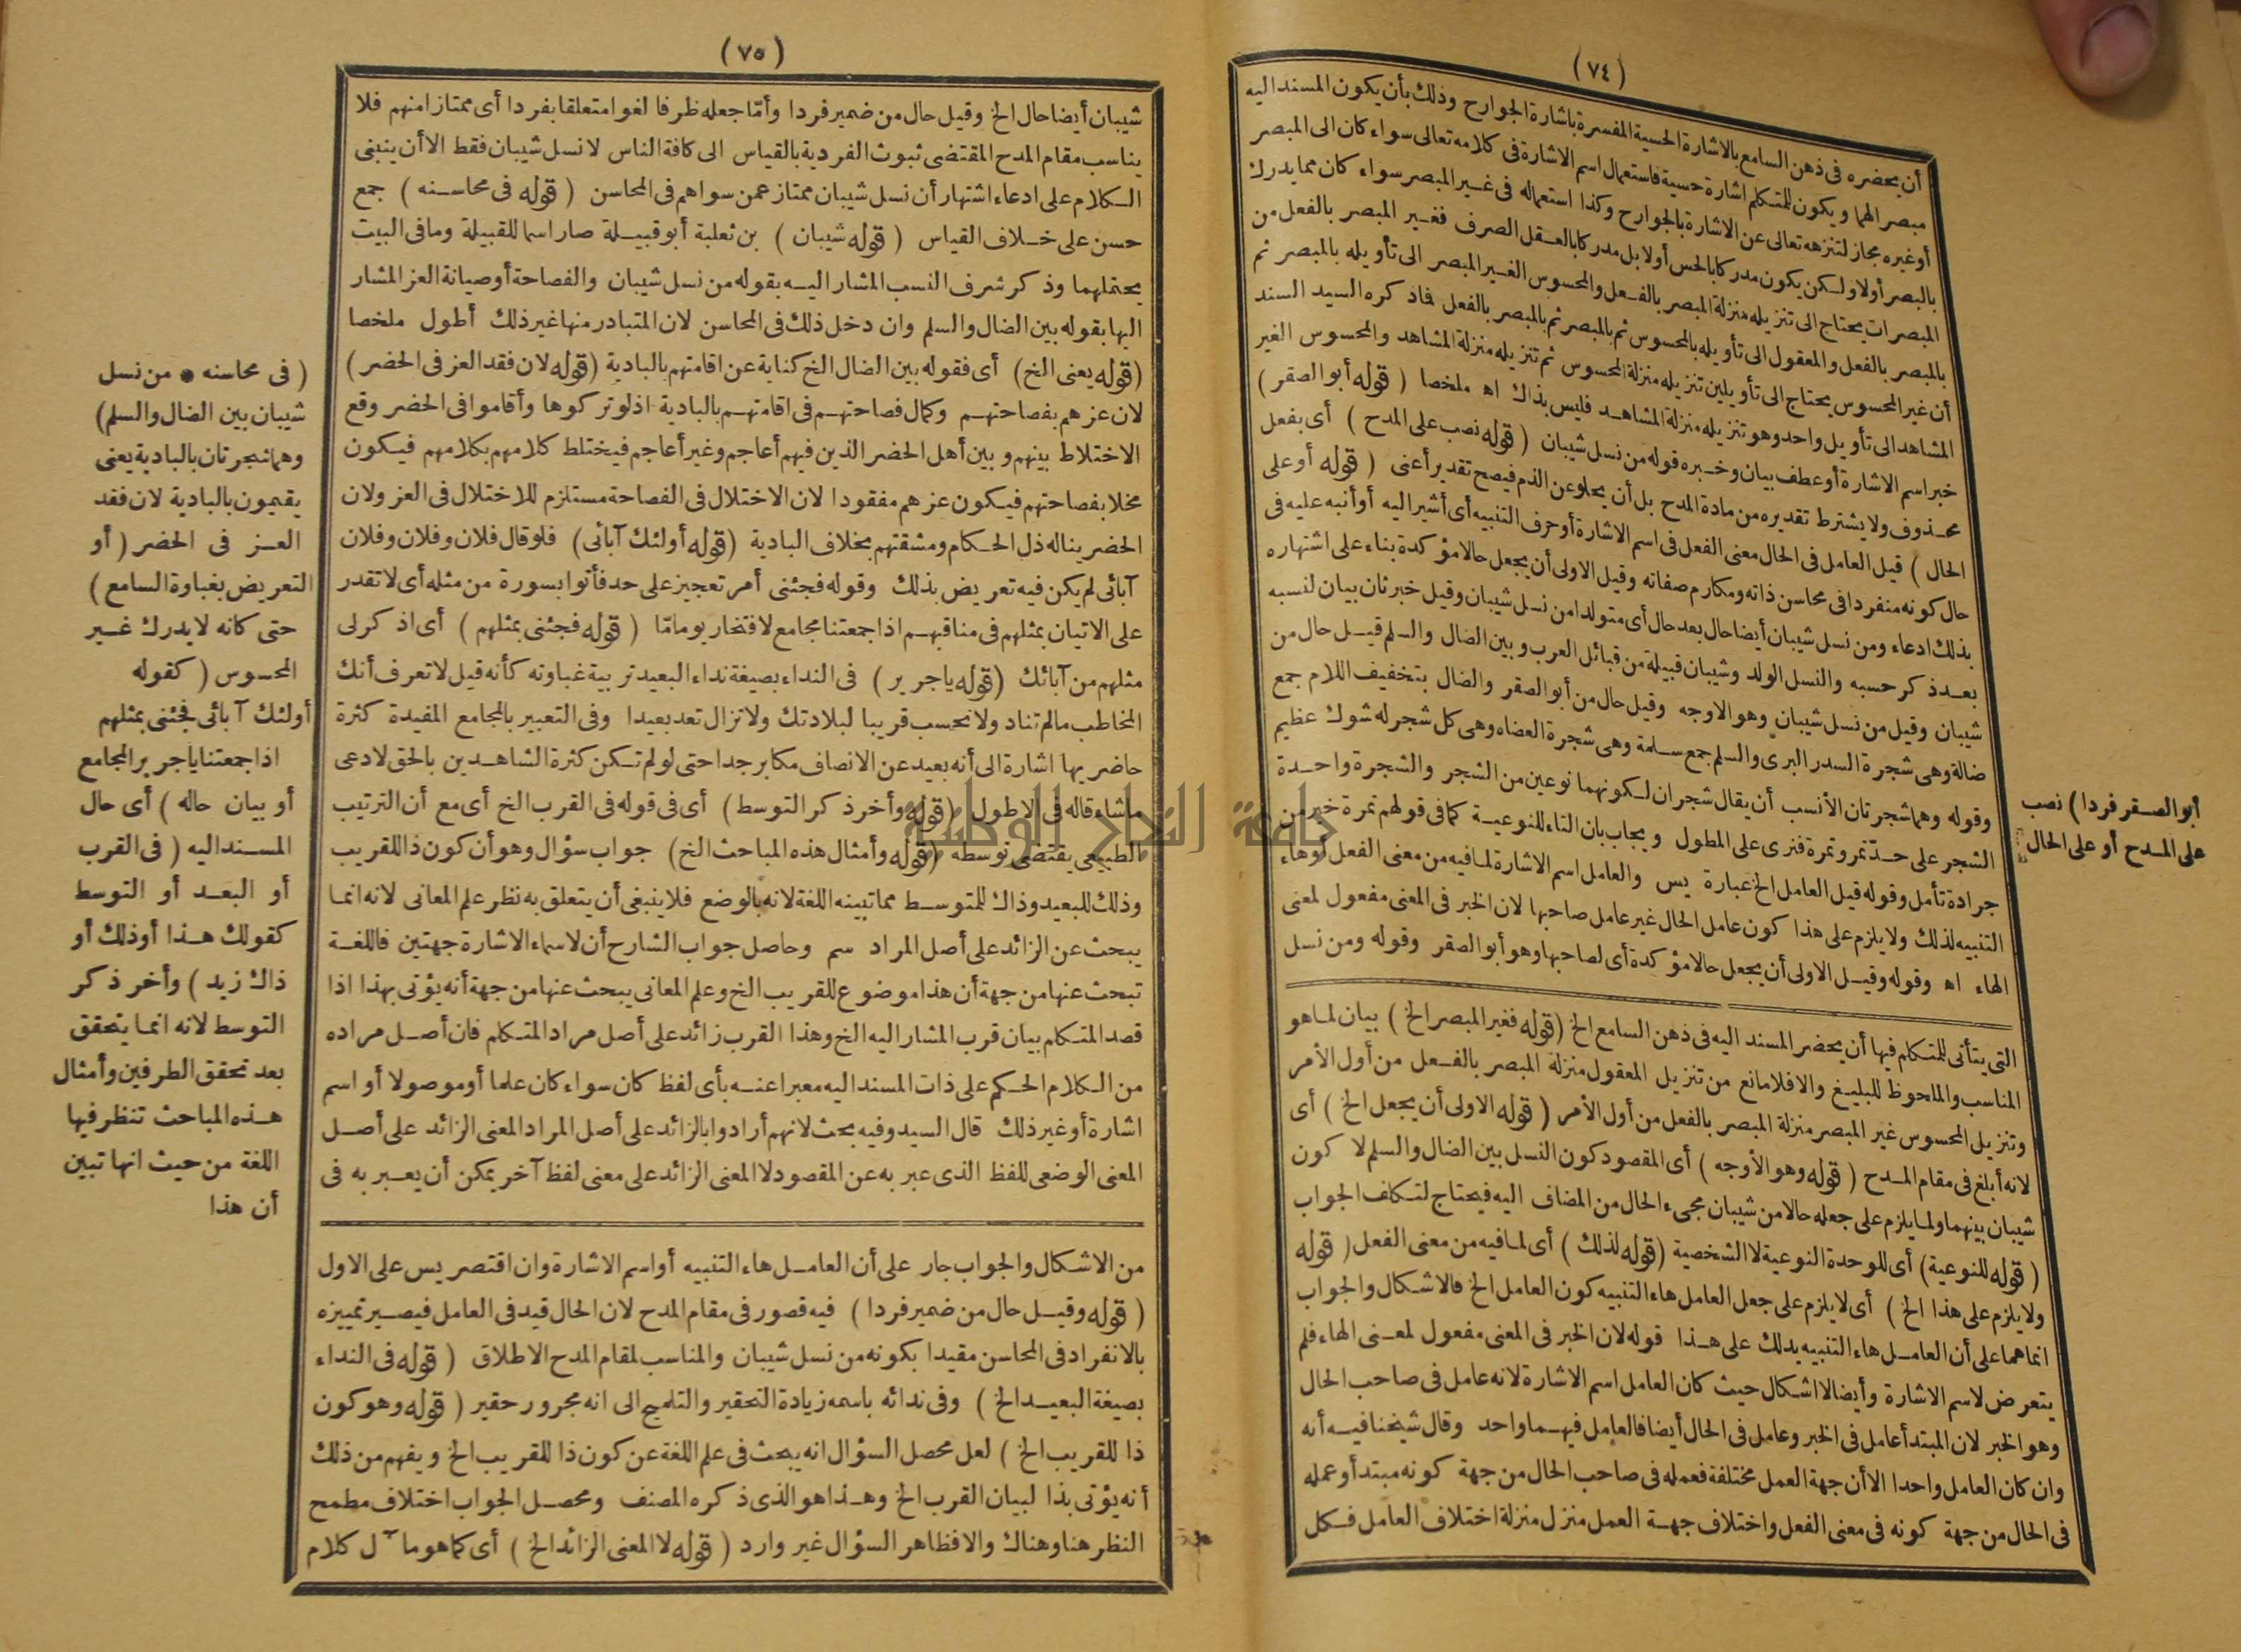 (٧٤)
أن يحضره فى ذهن السامع بالاشارة الحسية المفسرة باشارة الجوارح وذلك بأن يكون المسند اليه
مبصر الهما ويكون للمتكلم اشارة حسية فاستعمال اسم الاشارة فى كلامه تعالى سواء كان الى المبصر
أو غيره مجاز لتنزهه تعالى عن الاشارة بالجوارح وكذا استعماله فى غير المبصر سواء كان مما يدرك
بالبصر أولا ولكن يكون مدركا بالحس أولا بل مدركا بالعقل الصرف فغير المبصر بالفعل من
المبصرات يحتاج الى تنزيله منزلة المبصر بالفعل والمحسوس الغير المبصر الى تأويله بالمبصر ثم
بالمبصر بالفعل والمعقول الى تأويله بالمحسوس ثم بالمبصر ثم بالمبصر بالفعل فاذكره السيد السند
أن غير المحسوس يحتاج الى تأويلين تنزيله منزلة المحسوس ثم تنزيله منزلة المشاهد والمحسوس الغير
المشاهد الى تأويل واحد وهو تنزيله منزلة المشاهد فليس بذاك اه ملخصا (قوله أبو الصقر)
خبر اسم الاشارة أو عطف بيان وخبره قوله من نسل شيبان (قوله نصب على المدح) أى بفعل
محذوف ولا يشترط تقديره من مادة المدح بل أن يخلو عن الذم فيصح تقدير أعنى (قوله أو على
الحال) قيل العامل فى الحال معنى الفعل فى اسم الاشارة أو حرف التنبيه أى أشير اليه أو أنبه عليه فى
حال كونه منفردا فى محاسن ذاته ومكارم صفاته وقيل الاولى أن يجعل حالا مؤكدة بناء على اشتهاره
بذلك ادعاء ومن نسل شيبان أيضا حال بعد حال أى متولدا من نسل شيبان وقيل خبر ثان بيان لنسبه
بعد ذكر حسبه والنسل الولد وشيبان قبيلة من قبائل العرب وبين الضال والسلم قيل حال من
شيبان وقيل من نسل شيبان وهو الاوجه وقيل حال من أبو الصقر والضال بتخفيف اللام جمع
ضالة وهى شجرة السدر البرى والسلم جمع سلمة وهى شجرة العضاه وهى كل شجر له شوك عظيم
وقوله وهما شجرتان الأنسب أن يقال شجران لكونهما نوعين من الشجر والشجرة واحدة
الشجر على حد تمر وتمرة فنرى على المطول ويجاب بان التاء للنوعية كما فى قولهم تمرة خير من
جرادة تأمل وقوله قيل العامل الخ عبارة يس والعامل اسم الاشارة لما فيه من معنى الفعل أو هاء
التنبيه لذلك ولا يلزم على هذا كون عامل الحال غير عامل صاحبها لان الخبر فى المعنى مفعول لمعنى
الهاء اه وقوله وقيل الاولى أن يجعل حالا مؤكدة أى لصاحبها وهو أبو الصقر وقوله ومن نسل
أبو الصقر فردا) نصب
على المدح أو على الحال
التى يتأتى للمتكلم فيها أن يحضر المسند اليه فى ذهن السامع الخ (قوله فغير المبصر الخ) بيان لما هو
المناسب والملحوظ للبليغ والا فلا مانع من تنزيل المعقول منزلة المبصر بالفعل من أول الأمر
وتنزيل المحسوس غير المبصر منزلة المبصر بالفعل من أول الأمر (قوله الاولى أن يجعل الخ) أى
لانه أبلغ فى مقام المدح (قوله وهو الأوجه) أى المقصود كون النسل بين الضال والسلم لا كون
شيبان بينهما ولما يلزم على جعله حالا من شيبان مجىء الحال من المضاف اليه فيحتاج لتكلف الجواب
(قوله للنوعية) أى للوحدة النوعية لا الشخصية (قوله لذلك) أى لما فيه من معنى الفعل (قوله
ولا يلزم على هذا الخ) أى لا يلزم على جعل العامل هاء التنبيه كون العامل الخ فالاشكال والجواب
انما هما على أن العامل هاء التنبيه يدلك على هذا قوله لان الخبر فى المعنى مفعول لمعنى الهاء فلم
يتعرض لاسم الاشارة وأيضا لا اشكال حيث كان العامل اسم الاشارة لانه عامل فى صاحب الحال
وهو الخبر لان المبتدأ عامل فى الخبر وعامل فى الحال أيضا فالعامل فيهما واحد وقال شيخنا فيه أنه
وان كان العامل واحدا الا أن جهة العمل مختلفة فعمله فى صاحب الحال من جهة كونه مبتدأ وعمله
فى الحال من جهة كونه فى معنى الفعل واختلاف جهة العمل منزل منزلة اختلاف العامل فكل
(٧٥)
شيبان أيضا حال الخ وقيل حال من ضمير فردا وأما جعله ظرفا لغوا متعلقا بفردا أى ممتازا منهم فلا
يناسب مقام المدح المقتضى ثبوت الفردية بالقياس الى كافة الناس لا نسل شيبان فقط الا أن ينبنى
الكلام على ادعاء اشتهار أن نسل شيبان ممتاز عمن سواهم فى المحاسن (قوله فى محاسنه) جمع
حسن على خلاف القياس (قوله شيبان) بن ثعلبة أبو قبيلة صار اسما للقبيلة وما فى البيت
يحتملهما وذكر شرف النسب المشار اليه بقوله من نسل شيبان والفصاحة أو صيانة العز المشار
اليها بقوله بين الضال والسلم وان دخل ذلك فى المحاسن لان المتبادر منها غير ذلك أطول ملخصا
(قوله يعنى الخ) أى فقوله بين الضال الخ كناية عن اقامتهم بالبادية (قوله لان فقد العز فى الحضر)
لان عزهم بفصاحتهم وكمال فصاحتهم فى اقامتهم بالبادية اذ لو تركوها وأقاموا فى الحضر وقع
الاختلاط بينهم وبين أهل الحضر الذين فيهم أعاجم وغير أعاجم فيختلط كلامهم بكلامهم فيكون
مخلا بفصاحتهم فيكون عزهم مفقودا لان الاختلال فى الفصاحة مستلزم للاختلال فى العز ولان
الحضر يناله ذل الحكام ومشقتهم بخلاف البادية (قوله أولئك آبائى) فلو قال فلان وفلان وفلان
آبائى لم يكن فيه تعريض بذلك وقوله فجئنى أمر تعجيز على حد فأتوا بسورة من مثله أى لا تقدر
على الاتيان بمثلهم فى مناقبهم اذا جمعتنا مجامع لافتخار يوما ما (قوله فجئنى بمثلهم) أى اذكر لى
مثلهم من آبائك (قوله يا جرير) فى النداء بصيغة نداء البعيد تربية غباوته كأنه قيل لا تعرف أنك
المخاطب مالم تناد ولا تحسب قريبا لبلادتك ولا تزال تعد بعيدا وفى التعبير بالمجامع المفيدة كثرة
حاضريها اشارة الى أنه بعيد عن الانصاف مكابر جدا حتى لو لم تكن كثرة الشاهدين بالحق لادعى
ما شاء قاله فى الاطول (قوله وأخر ذكر التوسط) أى فى قوله فى القرب الخ أى مع أن الترتيب
الطبيعى يقتضى توسطه (قوله وأمثال هذه المباحث الخ) جواب سؤال وهو أن كون ذا للقريب
وذلك للبعيد وذاك للمتوسط مما تبينه اللغة لانه بالوضع فلا ينبغى أن يتعلق به نظر علم المعانى لانه انما
يبحث عن الزائد على أصل المراد سم وحاصل جواب الشارح أن لاسماء الاشارة جهتين فاللغة
تبحث عنها من جهة أن هذا موضوع للقريب الخ وعلم المعانى يبحث عنها من جهة أنه يؤتى بهذا اذا
قصد المتكلم بيان قرب المشار اليه الخ وهذا القرب زائد على أصل مراد المتكلم فان أصل مراده
من الكلام الحكم على ذات المسند اليه معبرا عنه بأى لفظ كان سواء كان علما أو موصولا أو اسم
اشارة أو غير ذلك قال السيد وفيه بحث لانهم أرادوا بالزائد على أصل المراد المعنى الزائد على أصل
المعنى الوضعى للفظ الذى عبر به عن المقصود لا المعنى الزائد على معنى لفظ آخر يمكن أن يعبر به فى
(فى محاسنه * من نسل
شيبان بين الضال والسلم)
وهما شجرتان بالبادية يعنى
يقيمون بالبادية لان فقد
العز فى الحضر (أو
التعريض بغباوة السامع)
حتى كانه لا يدرك غير
المحسوس (كقوله
أولئك آبائى فجئنى بمثلهم
اذا جمعتنا يا جرير المجامع
أو بيان حاله) أى حال
المسند اليه (فى القرب
أو البعد أو التوسط
كقولك هذا أو ذلك أو
ذاك زيد) وأخر ذكر
التوسط لانه انما يتحقق
بعد تحقق الطرفين وأمثال
هذه المباحث تنظر فيها
اللغة من حيث انها تبين
أن هذا
من الاشكال والجواب جار على أن العامل هاء التنبيه أو اسم الاشارة وان اقتصر يس على الاول
(قوله وقيل حال من ضمير فردا) فيه قصور فى مقام المدح لان الحال قيد فى العامل فيصير تمييزه
بالانفراد فى المحاسن مقيدا بكونه من نسل شيبان والمناسب لمقام المدح الاطلاق (قوله فى النداء
بصيغة البعيد الخ) وفى ندائه باسمه زيادة التحقير والتلميح الى انه مجرور حقير (قوله وهو كون
ذا للقريب الخ) لعل محصل السؤال انه يبحث فى علم اللغة عن كون ذا للقريب الخ ويفهم من ذلك
أنه يؤتى بذا لبيان القرب الخ وهذا هو الذى ذكره المصنف ومحصل الجواب اختلاف مطمح
النظر هنا وهناك والا فظاهر السؤال غير وارد (قوله لا المعنى الزائد الخ) أى كما هو مآل كلام
جامعة النجاح الوطنية